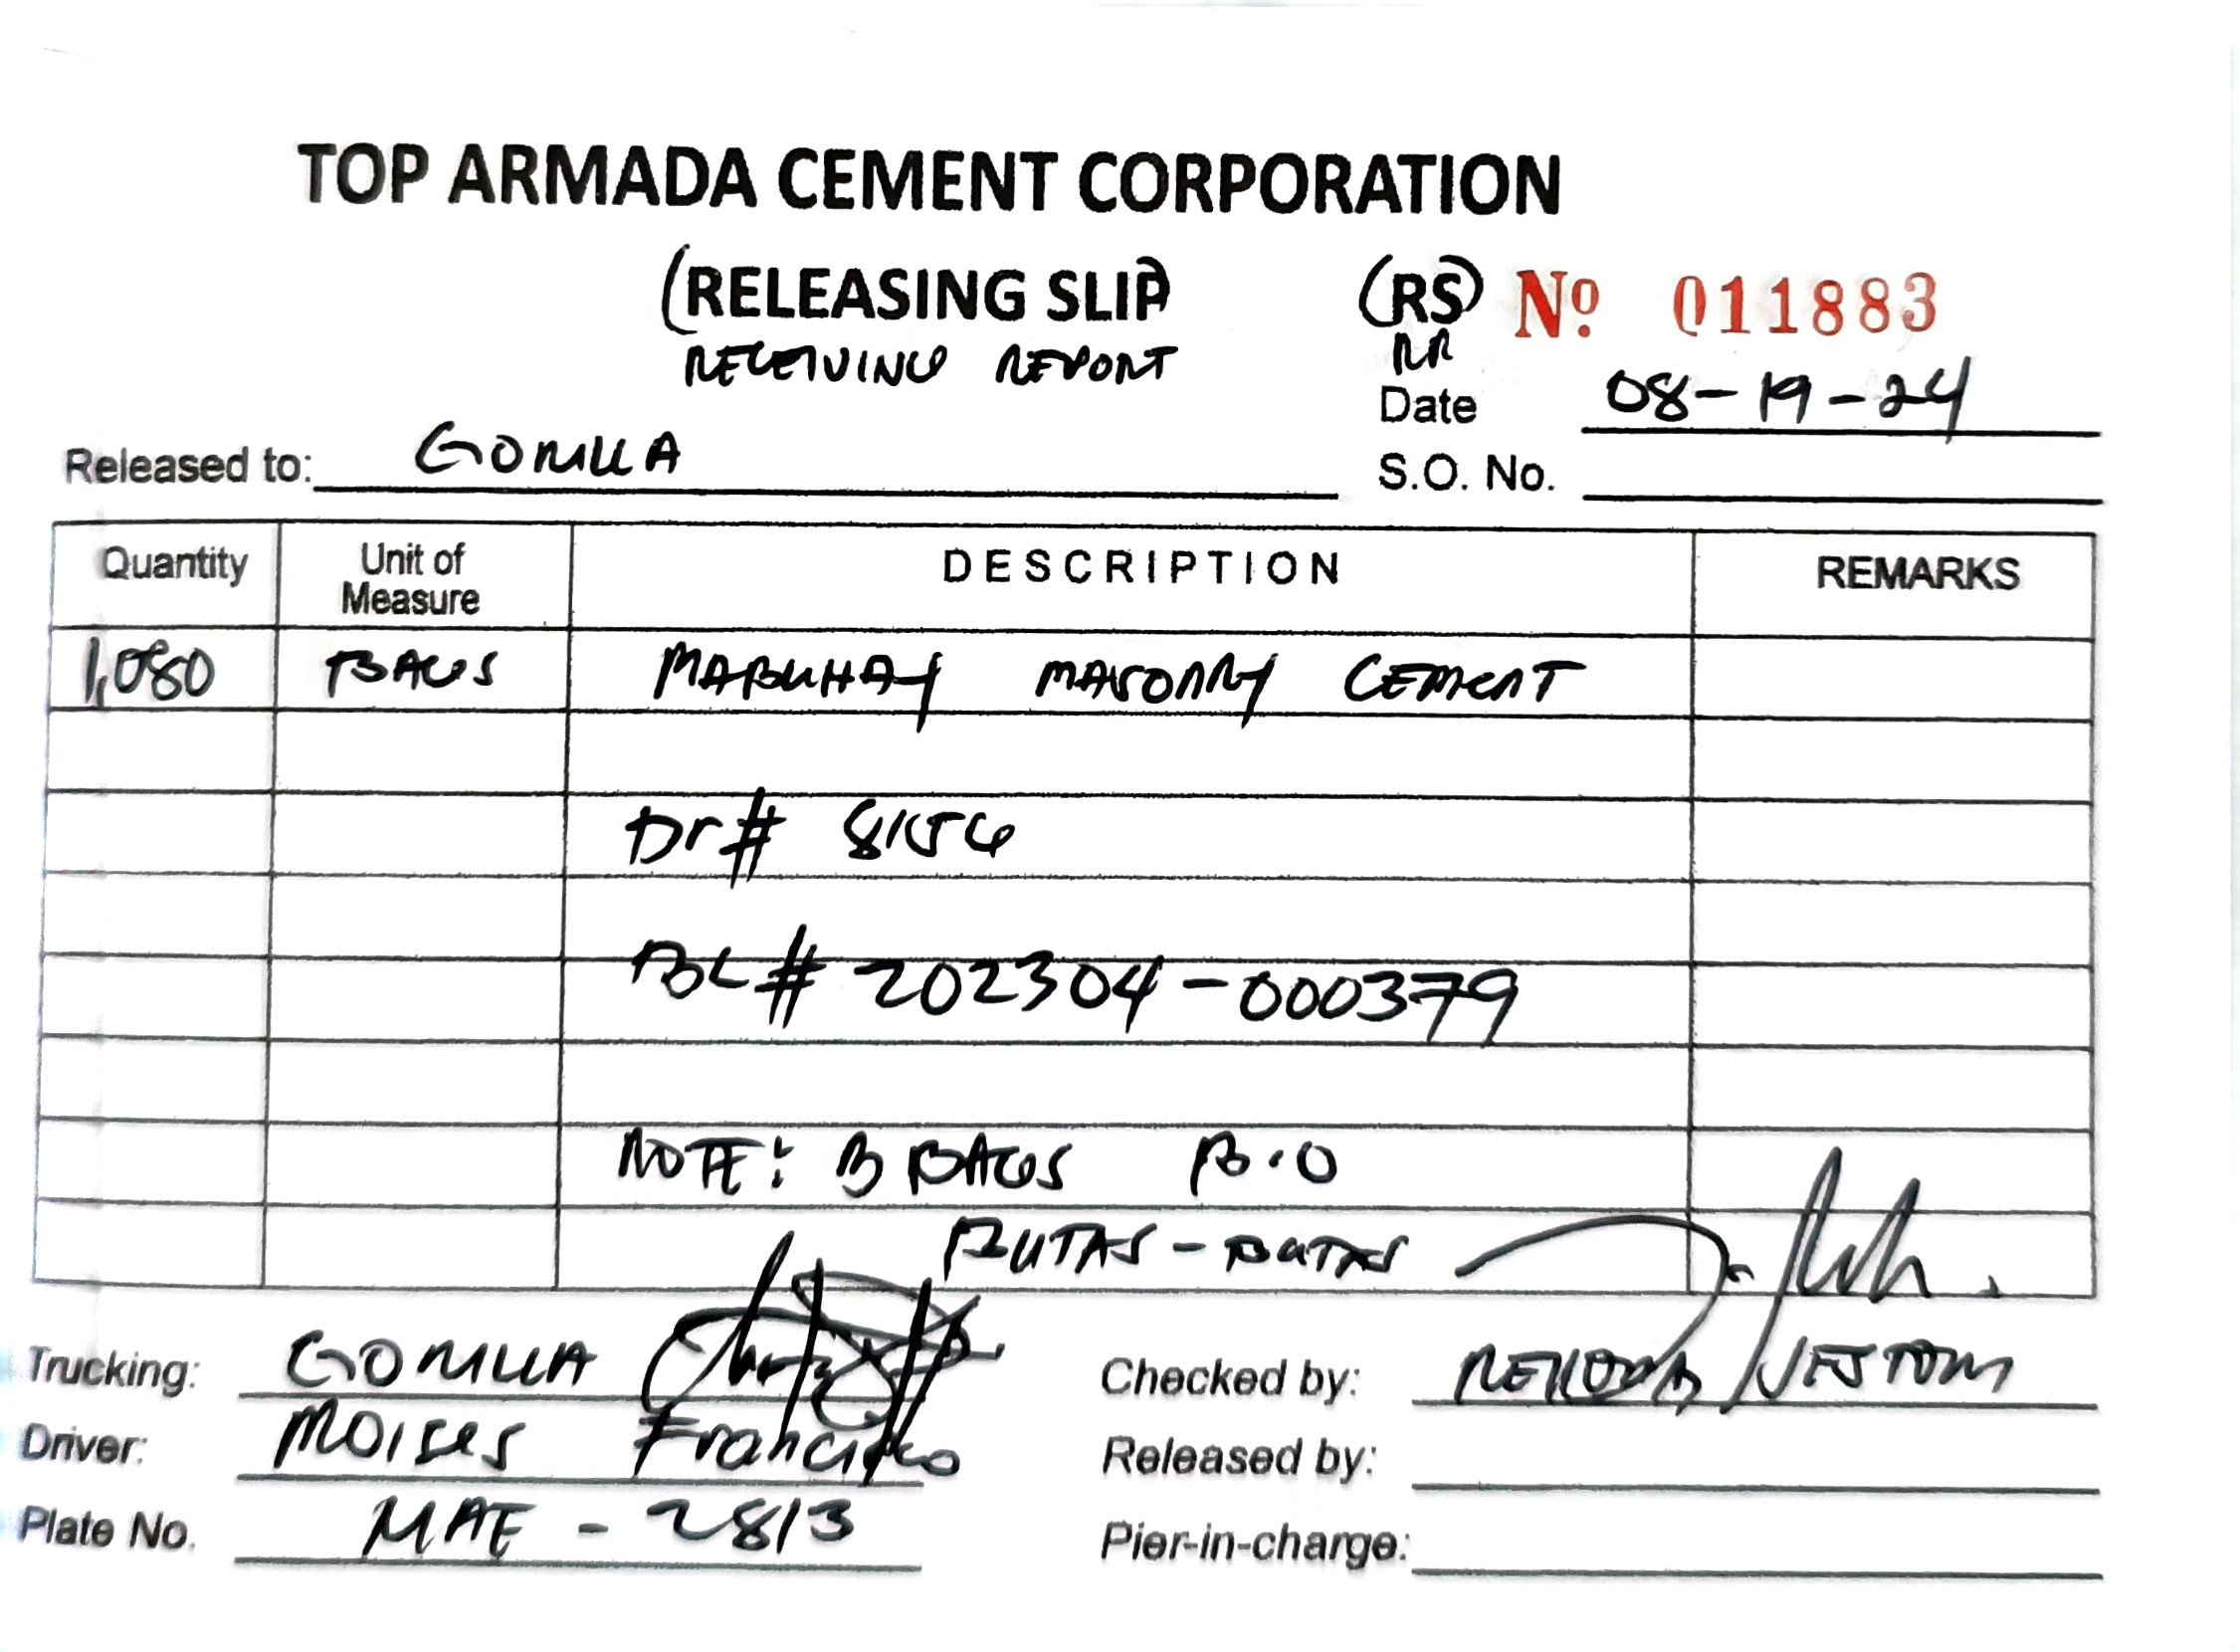 TOP ARMADA CEMENT CORPORATION
(RELEASING SLIP) (RS) Nº 011883
RECEIVING REPORT RR
Date 08-19-24
Released to: GORILLA S.O. No.
Quantity Unit of Measure DESCRIPTION REMARKS
1,080 BAGS MABUHAY MASONRY CEMENT
Dr# 8156
BL# 202304-000379
NOTE: 3 BAGS B.O
BUTAS-BUTAS
Trucking: GORILLA Checked by:
Driver: MOISES Francisco Released by:
Plate No. MAE - 2813 Pier-in-charge: